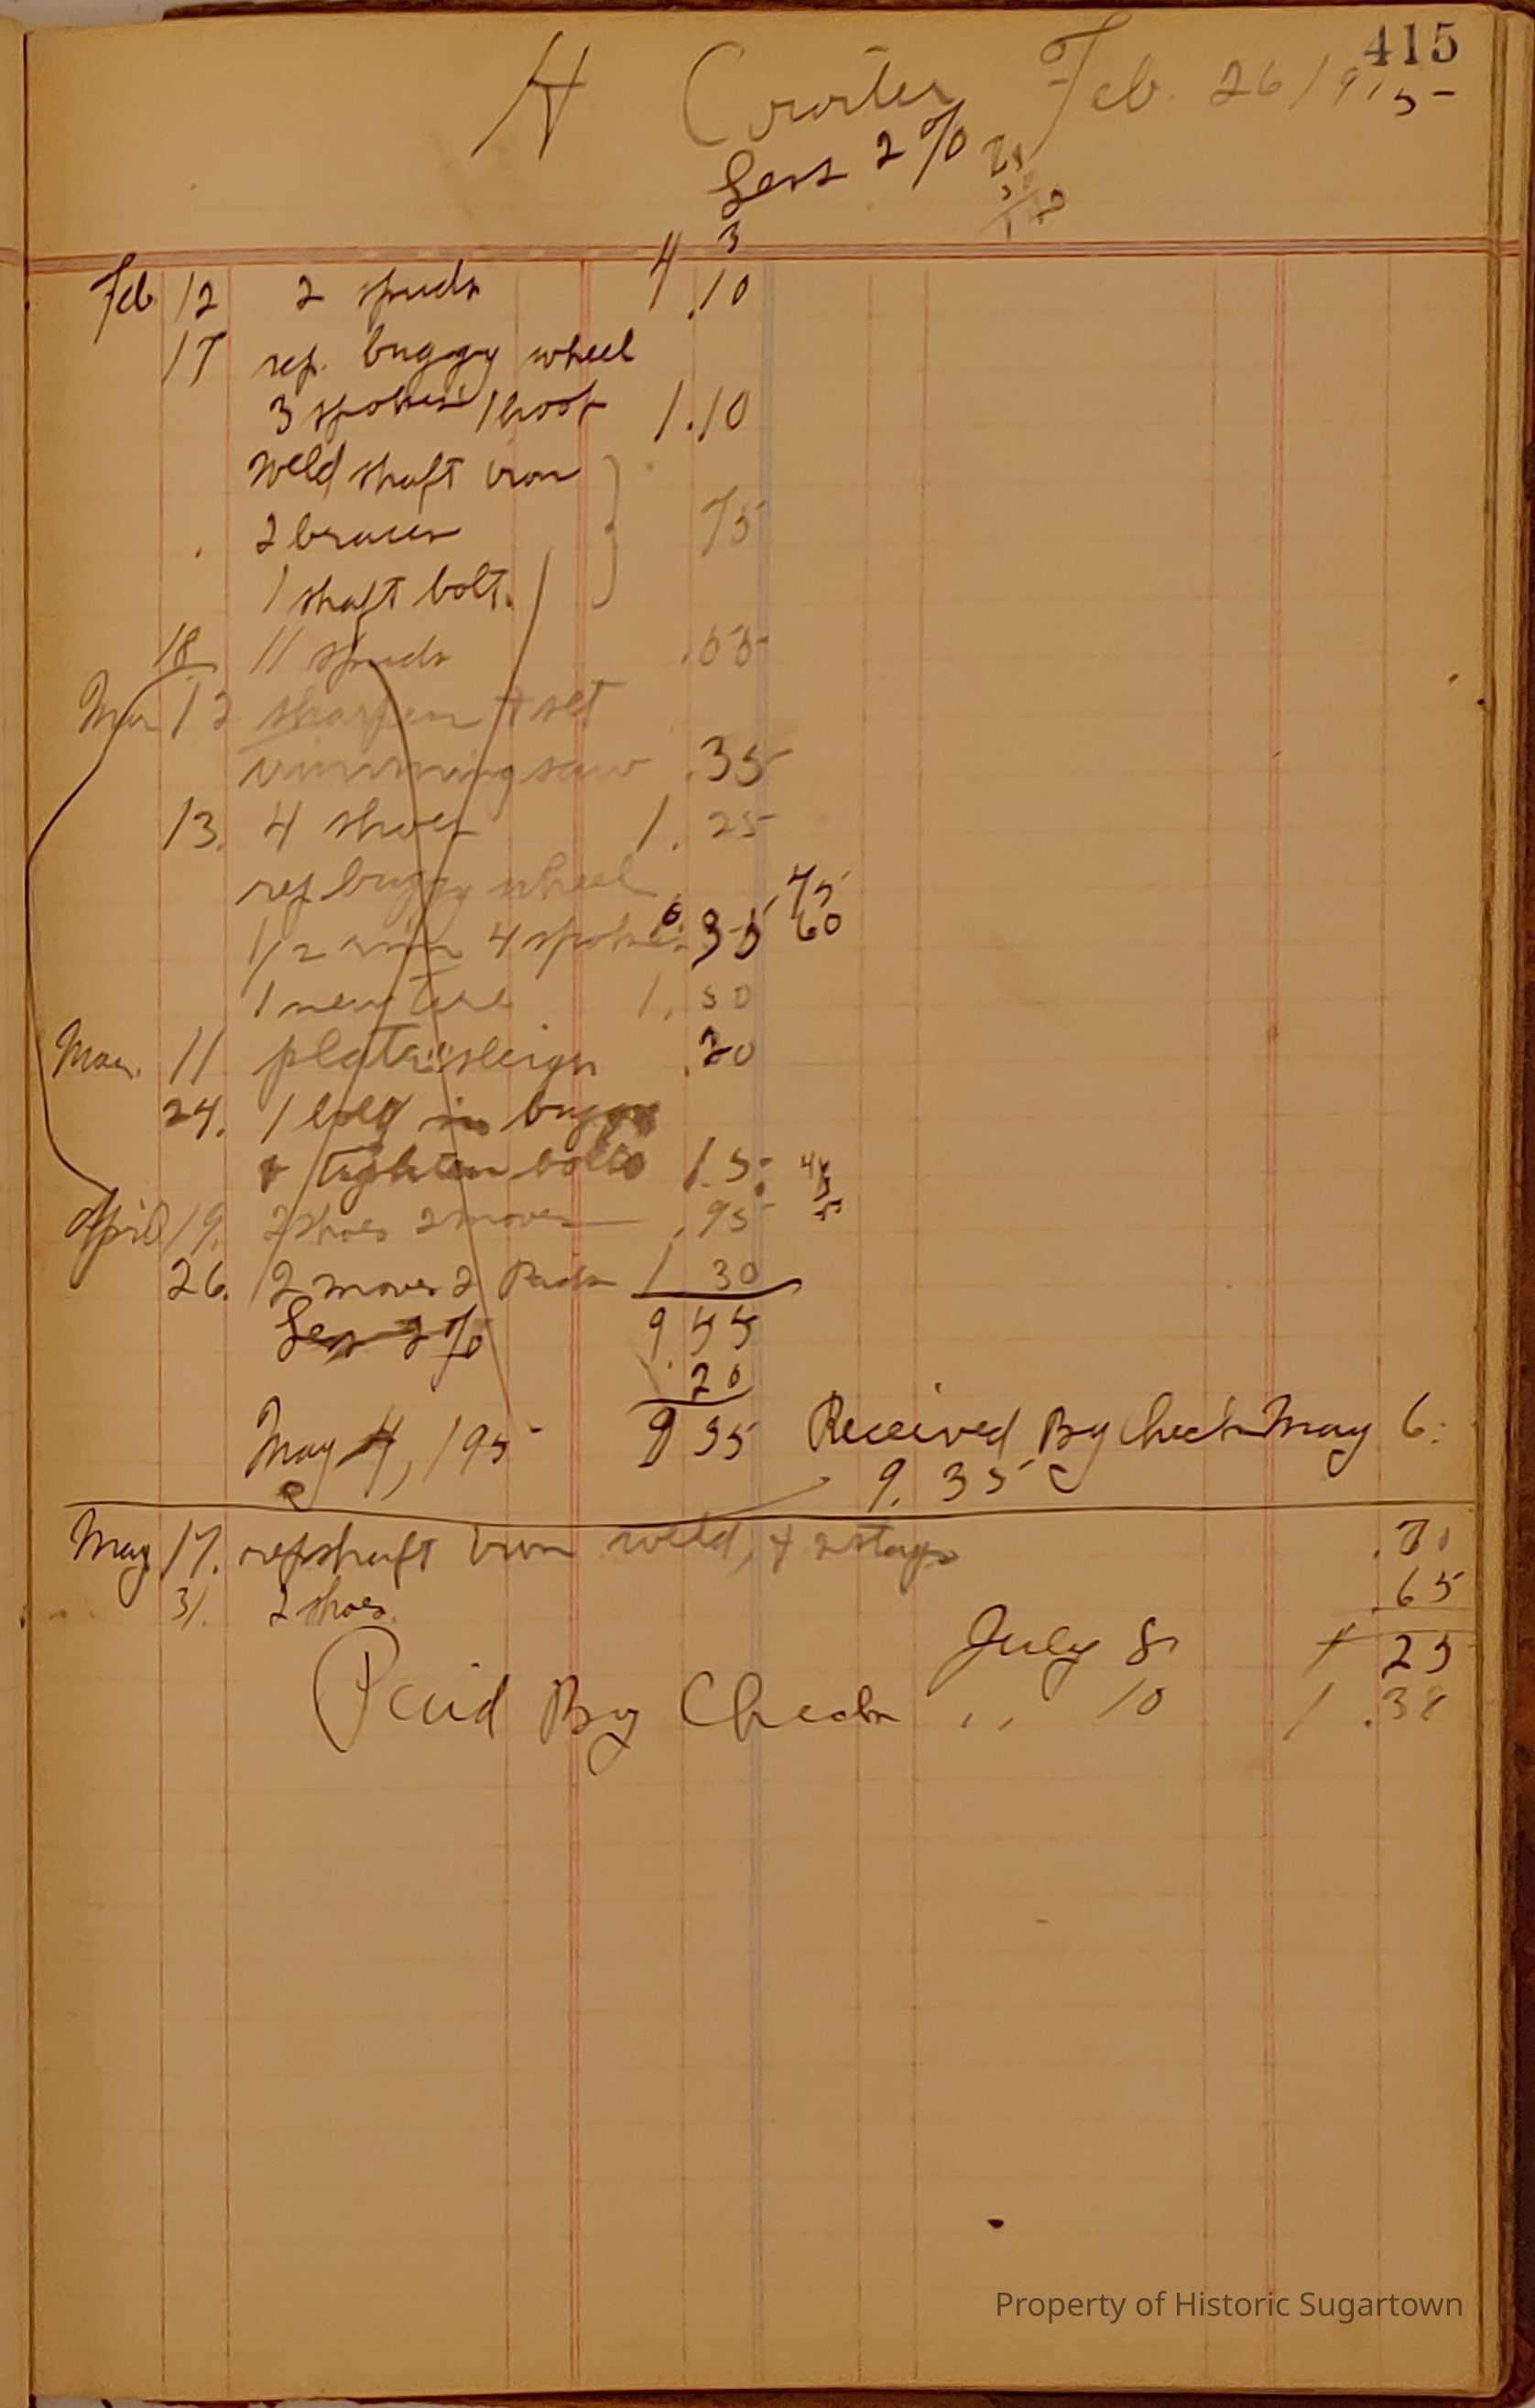 415
H Feb. 26/915
Less 2%
4 3
Feb 12 2 spuds .10
17 rep. buggy wheel
3 spokes 1 1.10
Weld shaft iron
2 braces 75
1 shaft bolt.
18 11 spuds .55
Mar 12 sharpen & set
saw .35
13. 4 shoes 1.25
rep buggy wheel 75
1/2 rim 4 spokes 60
1 new tire 1.50
Mar. 11 plate sleigh .20
24. 1 bolt in buggy
& tighten bolts 15
April 19. 2 shoes 2 moves .95
26. 2 moves 2 1 30
Less 2% 9 55
.20
May 4, 195 9 35 Received By Check May 6.
9.35c
May 17. rep shaft iron weld, & 2 stays .70
31. 2 shoes. .65
July 8 1 25
Paid By Check ,, 10 1.38
Property of Historic Sugartown